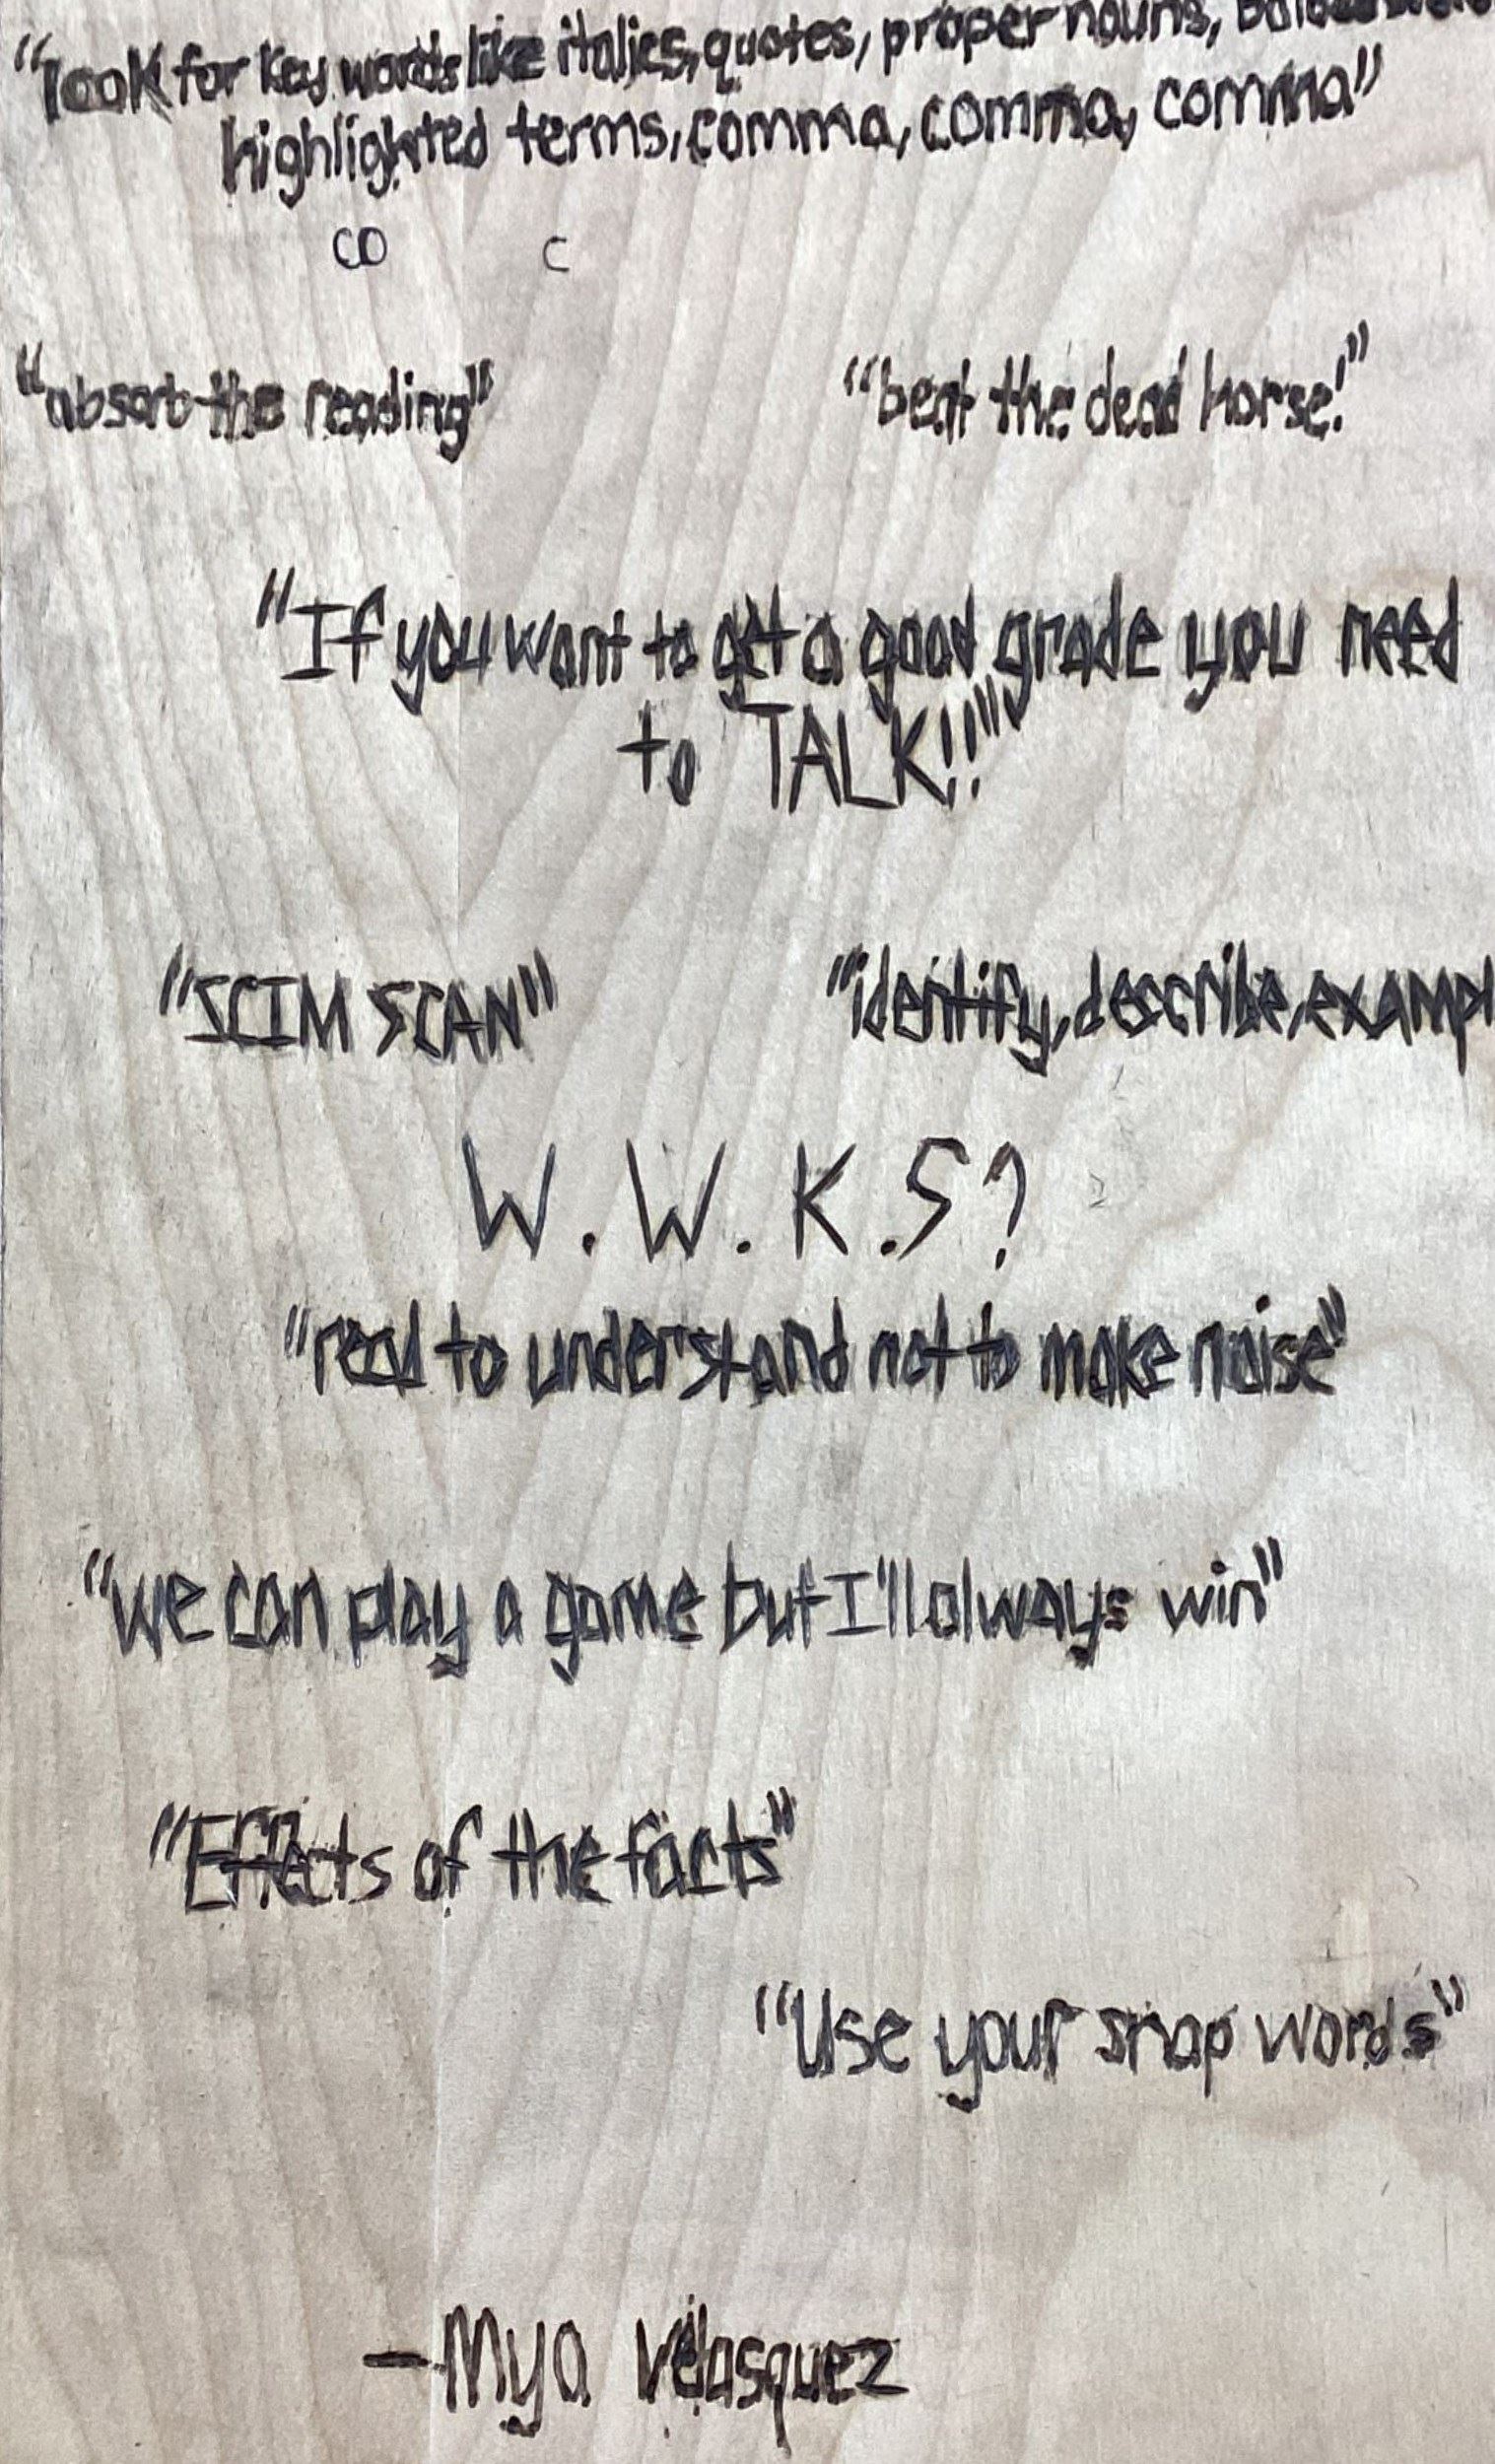 "look for key words like italics, quotes, proper nouns,
highlighted terms, comma, comma, comma"
co c
"absorb the reading" "beat the dead horse!"
"If you want to get a good grade you need
to TALK!!"
"SCIM SCAN" "identify, describe, exampl
W.W.K.S?
"read to understand not to make noise"
"we can play a game but I'll always win"
"Effects of the facts"
"Use your snap words"
-Mya Velasquez